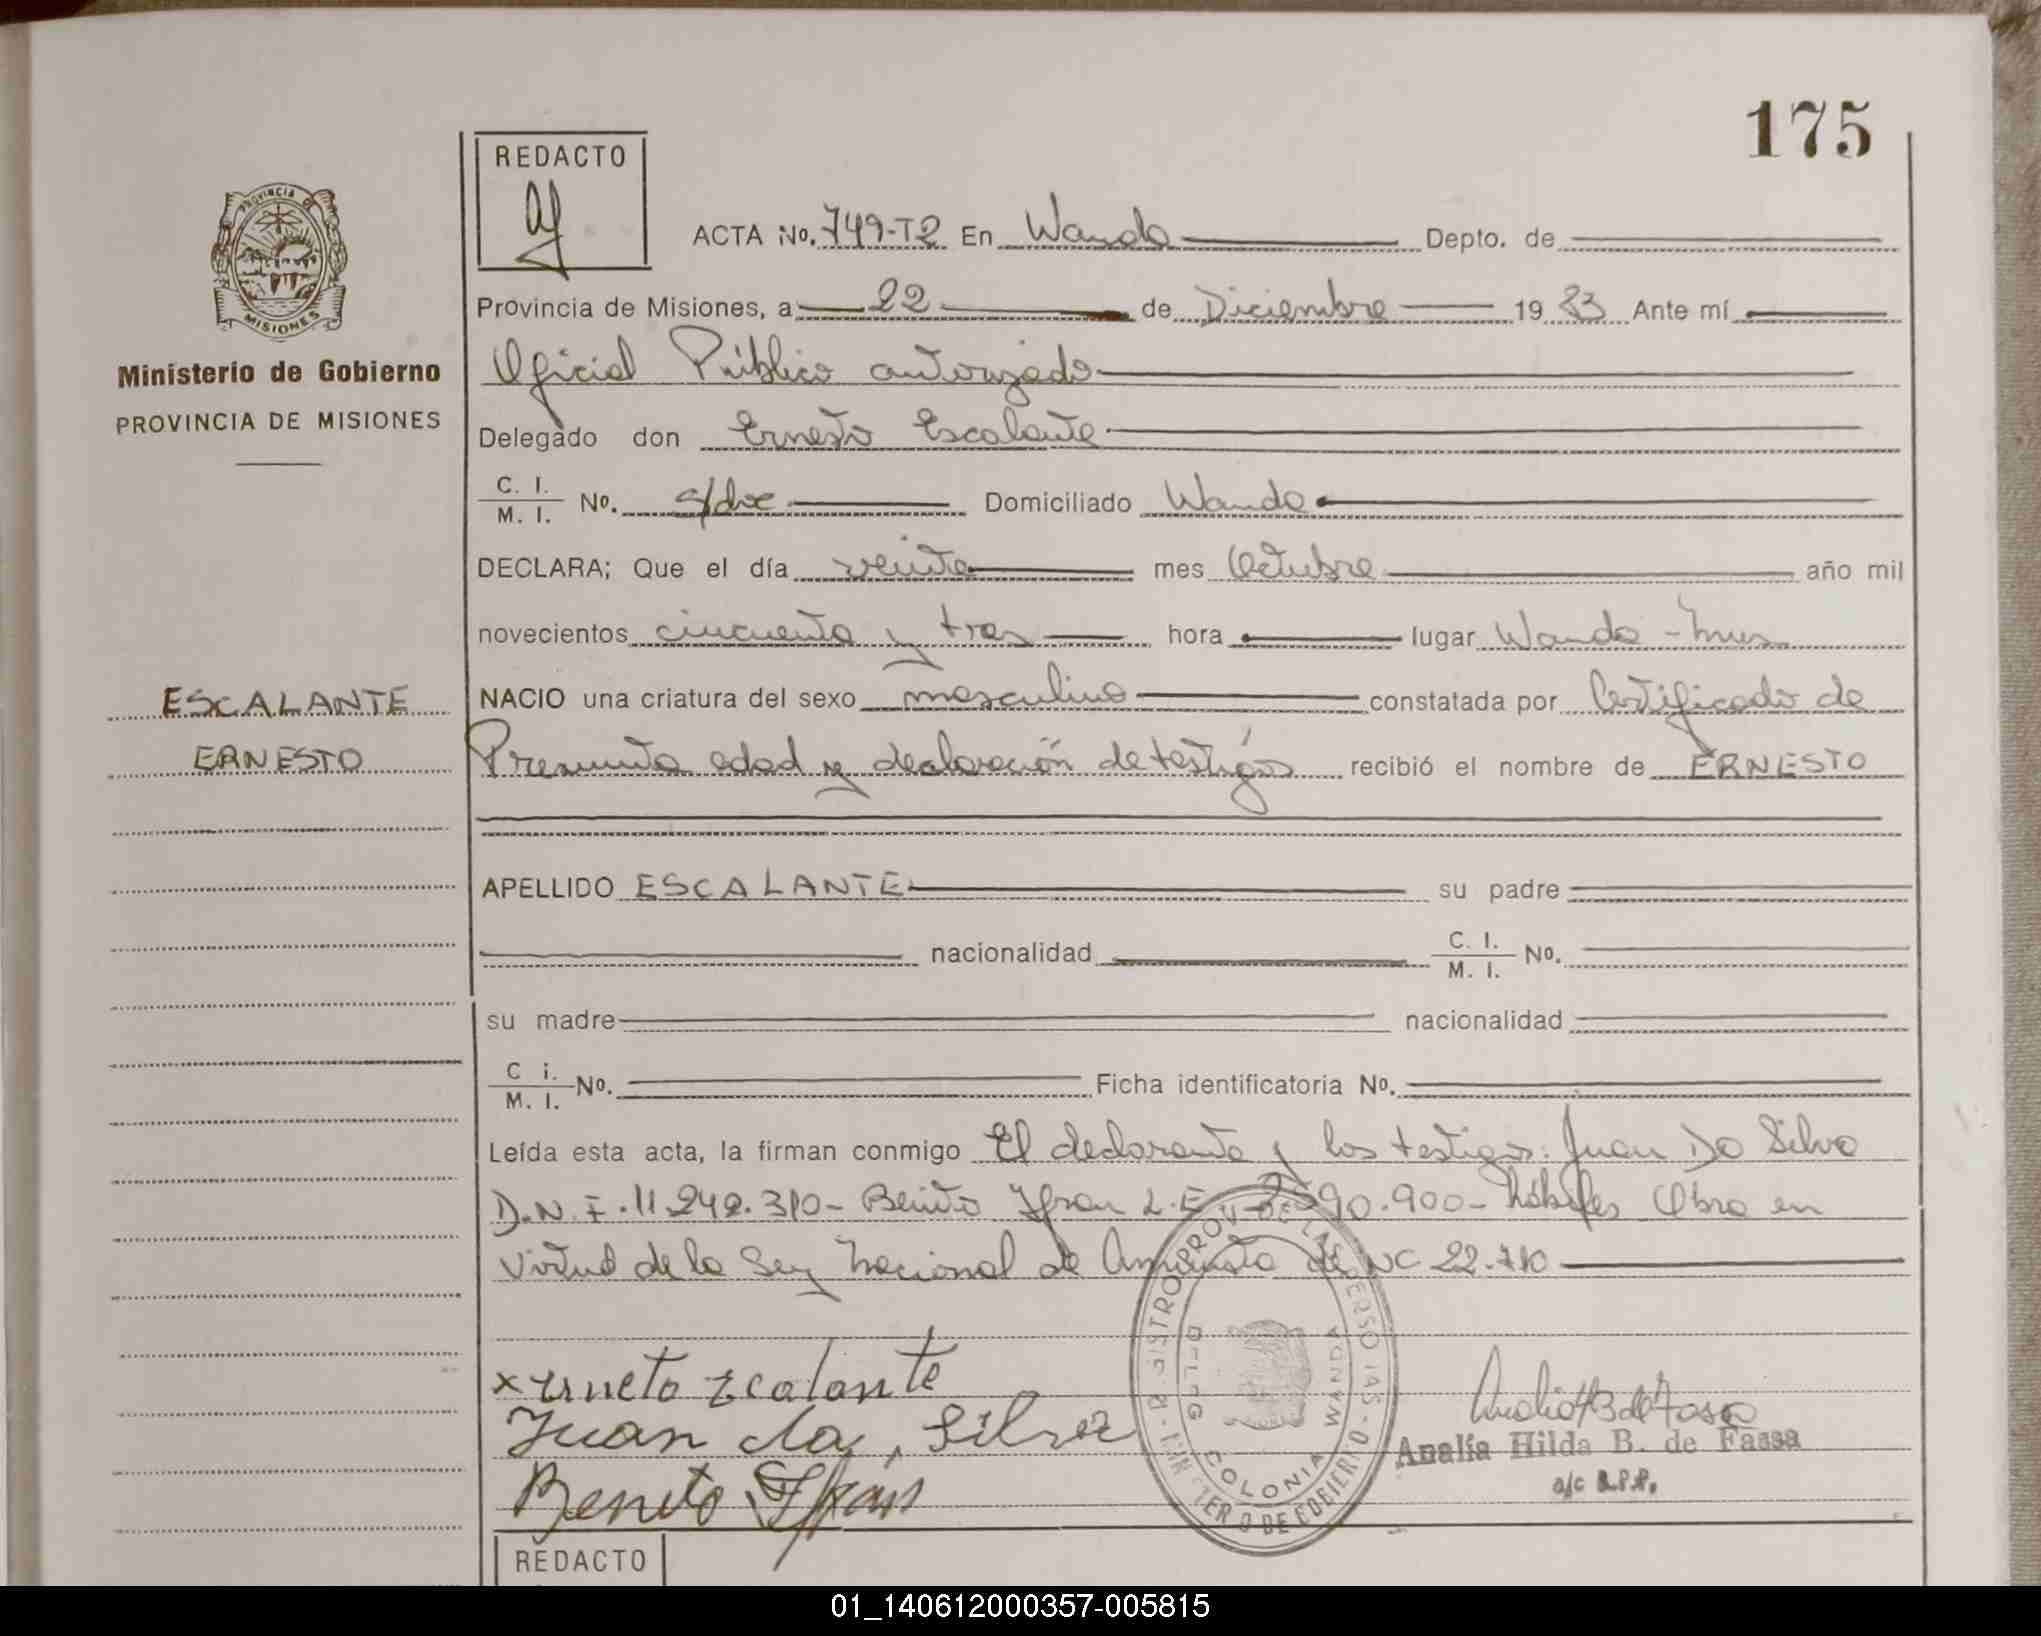 175
REDACTO
PROVINCIA DE MISIONES
ACTA No. 749-T2 En Wanda Depto. de
Provincia de Misiones, a 22 de Diciembre 19 83 Ante mí
Oficial Público autorizado
Ministerio de Gobierno
PROVINCIA DE MISIONES
Delegado don Ernesto Escalante
C. I.
M. I. No. s/doc Domiciliado Wanda
DECLARA; Que el día veinte mes Octubre año mil
novecientos cincuenta y tres hora lugar Wanda - Mnes
ESCALANTE
NACIO una criatura del sexo masculino constatada por Certificado de
ERNESTO
Presunta edad y declaración de testigos recibió el nombre de ERNESTO
APELLIDO ESCALANTE su padre
nacionalidad C. I.
M. I. No.
su madre nacionalidad
C i.
M. I. No. Ficha identificatoria No.
Leída esta acta, la firman conmigo El declarante y los testigos: Juan Da Silva
D.N.I. 11.242.310- Benito Ifran L.E. 90.900- hábiles Obra en
Virtud de la Ley Nacional de Amnistía de NC 22.710
x erneto ecalante
Juan da, Silva
Benito Ifran
Analía Hilda B. de Fassa
a/c R.P.P.
DELEG COLONIA WANDA
REDACTO
01_140612000357-005815